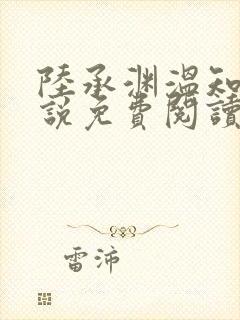 陸承渊溫知
說免費閱讀
雷沛